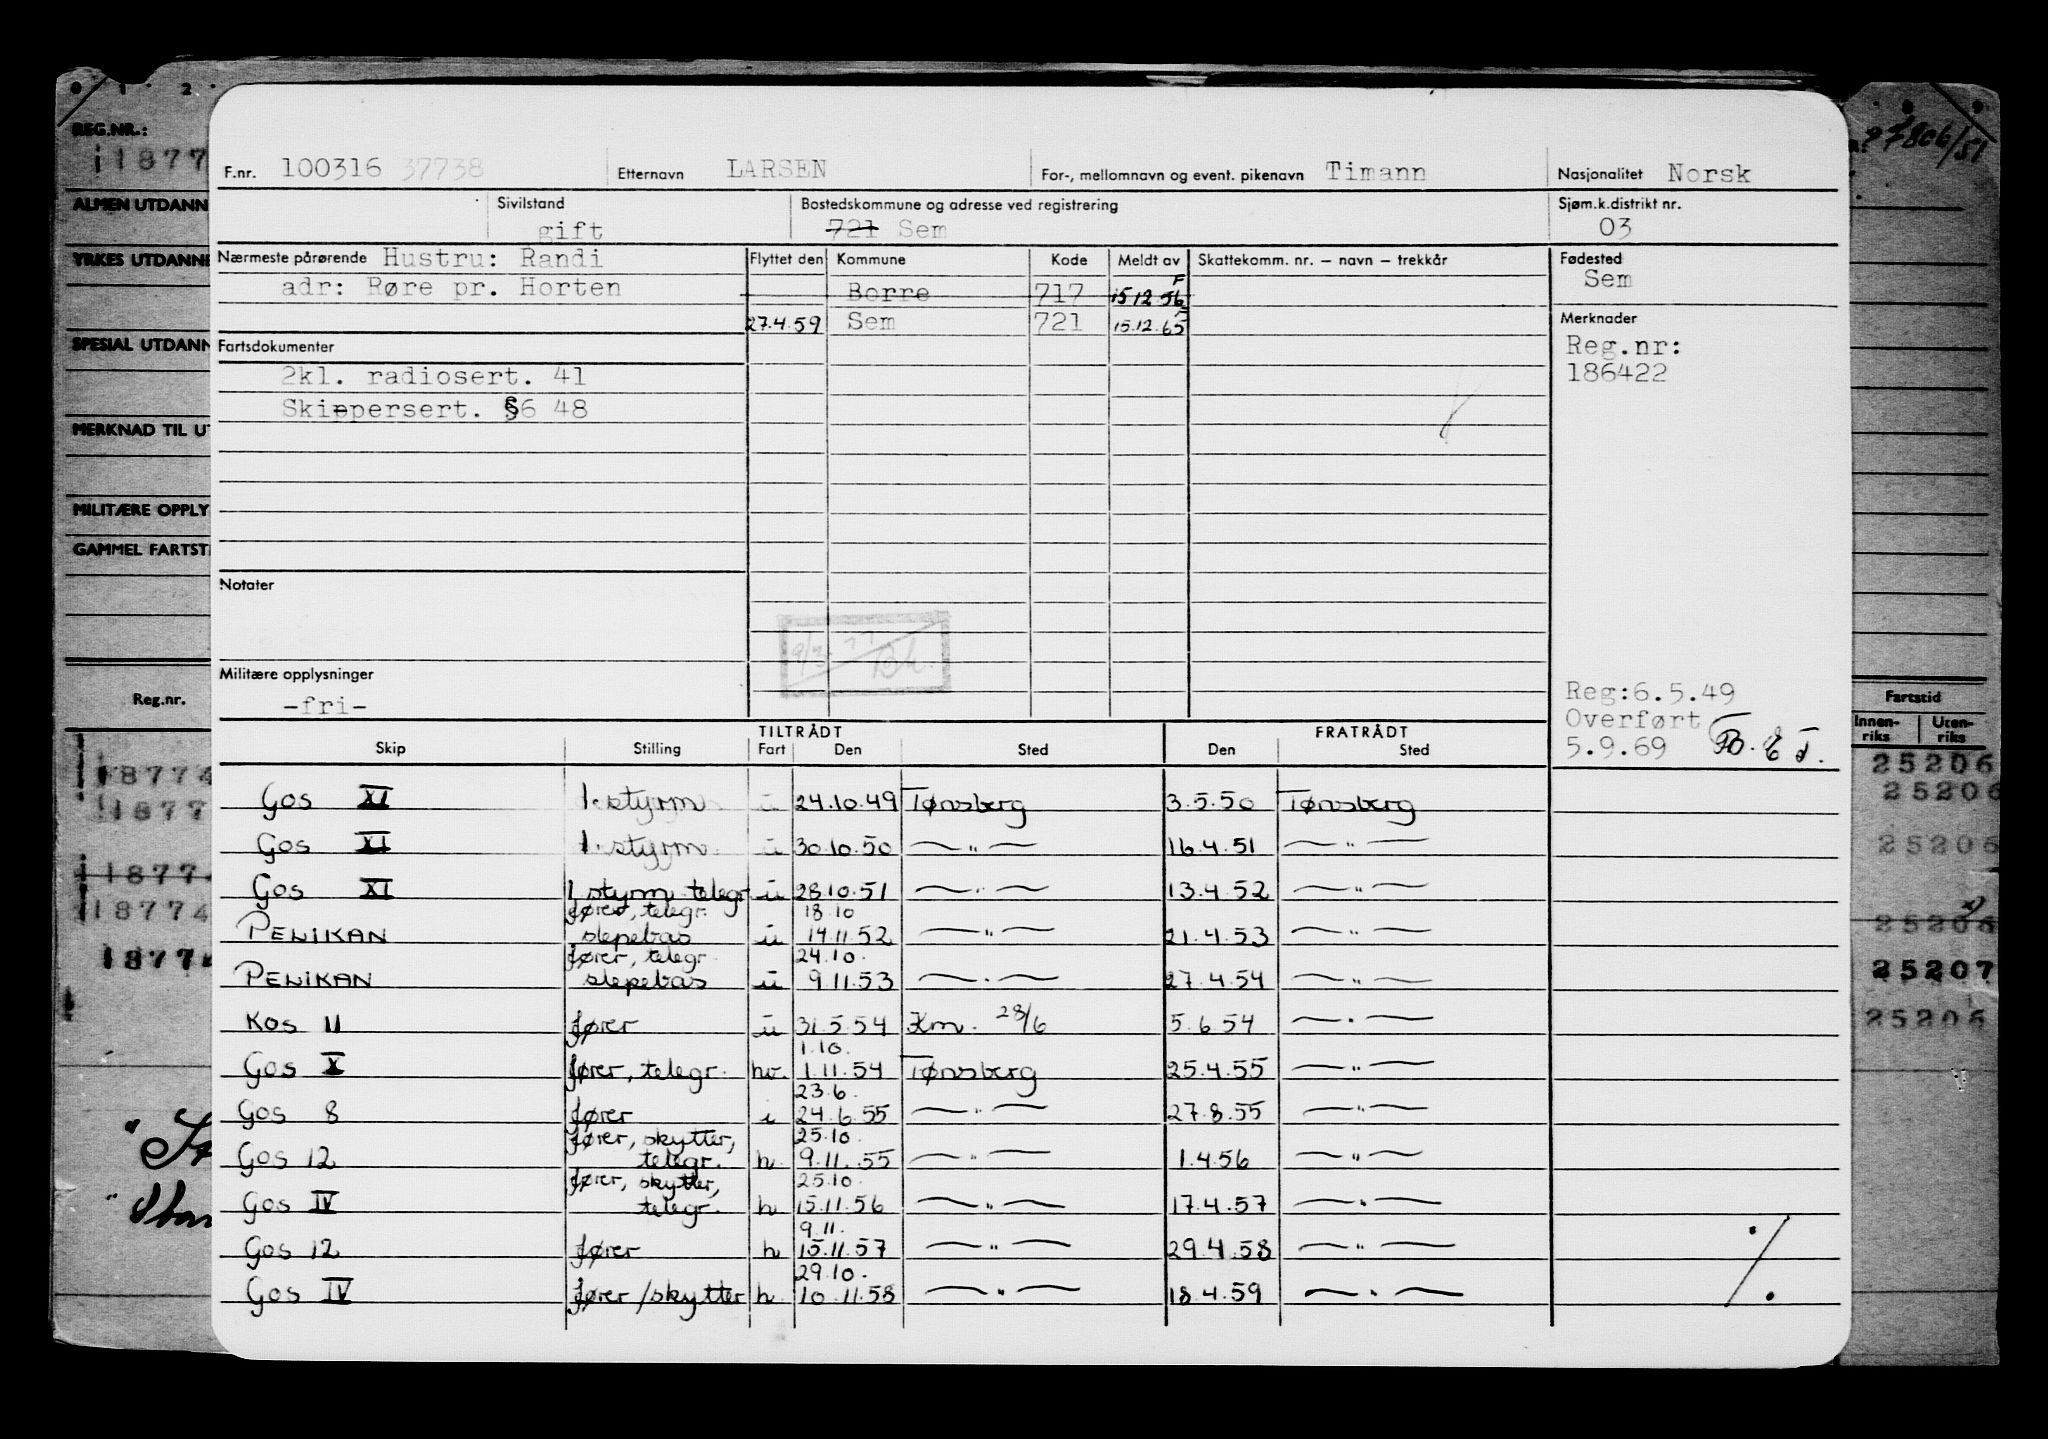 F.nr. 100316 37738 Etternavn LARSEN For-, mellomnavn og event. pikenavn Timann Nasjonalitet Norsk
Sivilstand gift Bostedskommune og adresse ved registrering 721 Sem Sjøm.k.distrikt nr. 03
Nærmeste pårørende Hustru: Randi Flyttet den Kommune Kode Meldt av Skattekomm. nr. – navn – trekkår Fødested
Sem
adr: Røre pr. Horten Borre 717 15.12.56 F
27.4.59 Sem 721 15.12.65
Merknader
Reg.nr:
186422
Fartsdokumenter
2kl. radiosert. 41
Skippersert. §6 48
Notater
Militære opplysninger
-fri-
Reg:6.5.49
Overført
5.9.69
TILTRÅDT FRATRÅDT
Skip Stilling Fart Den Sted Den Sted
Gos XI 1. styrm u 24.10.49 Tønsberg 3.5.50 Tønsberg
Gos XI 1. styrm. u 30.10.50 — " — 16.4.51 — " —
Gos XI 1 styrm telegr u 28.10.51 — " — 13.4.52 — " —
fører, telegr. 18.10
PELIKAN slepebas u 14.11.52 — " — 21.4.53 — " —
fører, telegr. 24.10.
PELIKAN slepebas u 9.11.53 — " — 27.4.54 — " —
Kos 11 fører u 31.5.54 Km. 28/6 5.6.54 — " —
1.10.
Gos X fører, telegr. hv. 1.11.54 Tønsberg 25.4.55 — " —
23.6.
Gos 8 fører i 24.6.55 — " — 27.8.55 — " —
fører, skytter, 25.10.
Gos 12 telegr. h 9.11.55 — " — 1.4.56 — " —
fører, skytter, 25.10.
Gos IV telegr. h 15.11.56 — " — 17.4.57 — " —
9.11.
Gos 12 fører h 15.11.57 — " — 29.4.58 — " —
29.10.
Gos IV fører/skytter h 10.11.58 — " — 18.4.59 — " —
REG.NR.:
11877
ALMEN UTDANN
YRKES UTDANNE
SPESIAL UTDANN
MERKNAD TIL UT
MILITÆRE OPPLY
GAMMEL FARTST
Reg.nr.
Fartstid
Innen-riks Uten-riks
25206
25206
25206
25206
25207
25206